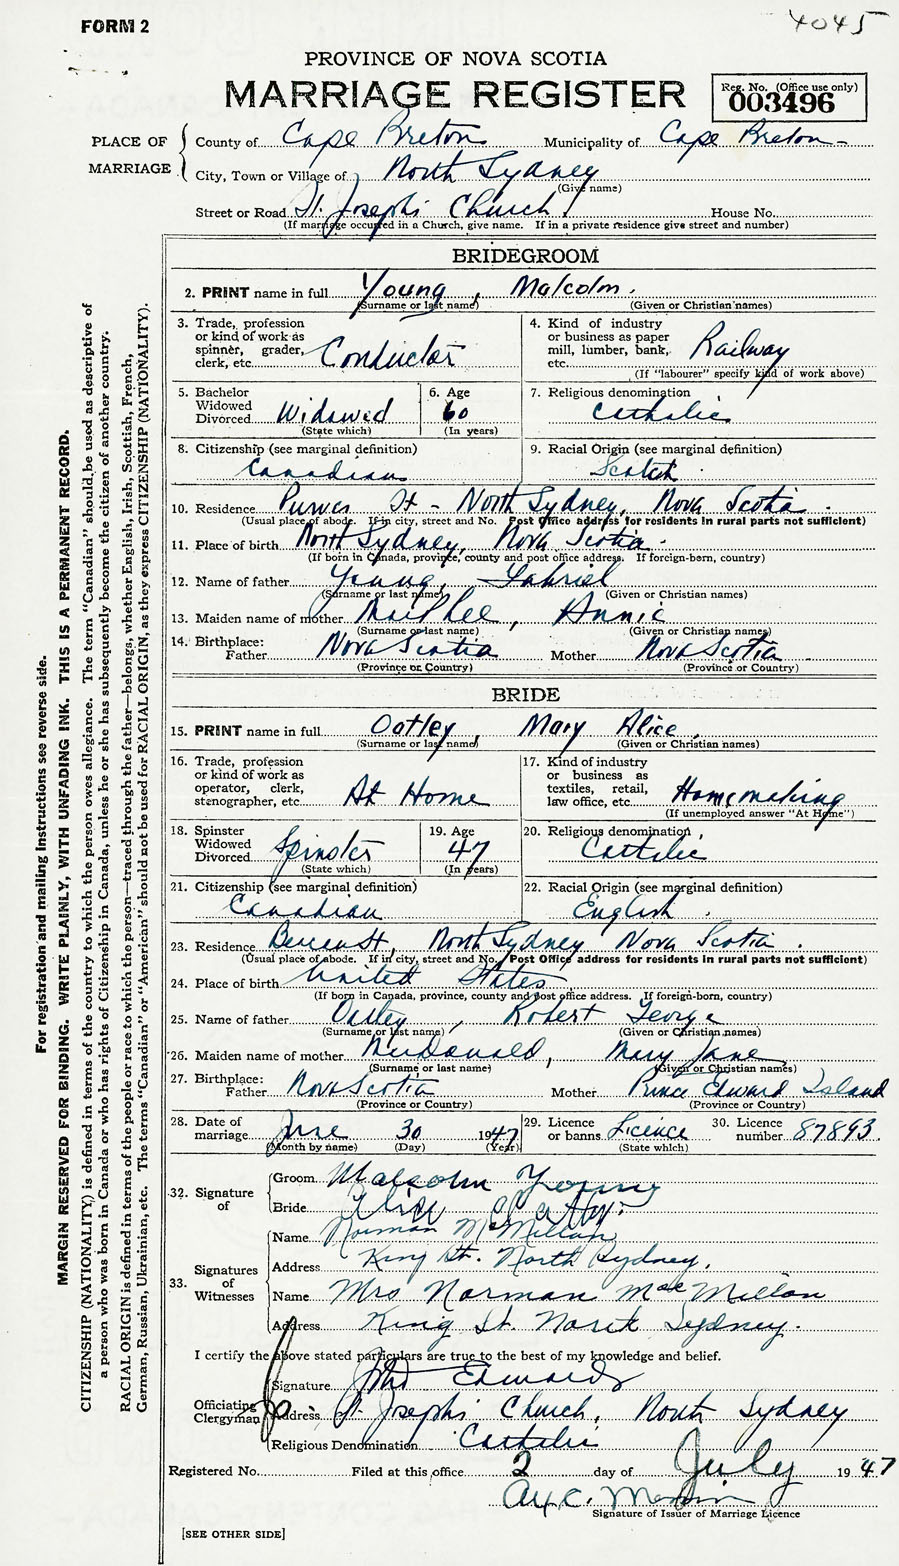 FORM 2
4045
PROVINCE OF NOVA SCOTIA
MARRIAGE REGISTER
Reg. No. (Office use only)
003496
PLACE OF MARRIAGE
County of Cape Breton Municipality of Cape Breton
City, Town or Village of North Sydney
(Give name)
Street or Road St. Joseph's Church House No.
(If marriage occurred in a Church, give name. If in a private residence give street and number)
BRIDEGROOM
2. PRINT name in full Young, Malcolm.
(Surname or last name) (Given or Christian names)
3. Trade, profession or kind of work as spinner, grader, clerk, etc. Conductor
4. Kind of industry or business as paper mill, lumber, bank, etc. Railway
(If "labourer" specify kind of work above)
5. Bachelor Widowed Divorced Widowed
(State which)
6. Age 60
(In years)
7. Religious denomination Catholic
8. Citizenship (see marginal definition) Canadian
9. Racial Origin (see marginal definition) Scotch
10. Residence Purves St - North Sydney, Nova Scotia.
(Usual place of abode. If in city, street and No. Post Office address for residents in rural parts not sufficient)
11. Place of birth North Sydney, Nova Scotia.
(If born in Canada, province, county and post office address. If foreign-born, country)
12. Name of father Young, Gabriel
(Surname or last name) (Given or Christian names)
13. Maiden name of mother MacPhee, Annie
(Surname or last name) (Given or Christian names)
14. Birthplace: Father Nova Scotia Mother Nova Scotia
(Province or Country) (Province or Country)
BRIDE
15. PRINT name in full Oatley, Mary Alice
(Surname or last name) (Given or Christian names)
16. Trade, profession or kind of work as operator, clerk, stenographer, etc. At Home
17. Kind of industry or business as textiles, retail, law office, etc. Homemaking
(If unemployed answer "At Home")
18. Spinster Widowed Divorced Spinster
(State which)
19. Age 47
(In years)
20. Religious denomination Catholic
21. Citizenship (see marginal definition) Canadian
22. Racial Origin (see marginal definition) English.
23. Residence St, North Sydney Nova Scotia.
(Usual place of abode. If in city, street and No. Post Office address for residents in rural parts not sufficient)
24. Place of birth United States
(If born in Canada, province, county and post office address. If foreign-born, country)
25. Name of father Oatley, Robert George
(Surname or last name) (Given or Christian names)
26. Maiden name of mother McDonald, Mary Jane
(Surname or last name) (Given or Christian names)
27. Birthplace: Father Nova Scotia Mother Prince Edward Island
(Province or Country) (Province or Country)
28. Date of marriage June 30 1947
(Month by name) (Day) (Year)
29. Licence or banns Licence
(State which)
30. Licence number 87893.
32. Signature of
Groom Malcolm Young
Bride Alice Oatley
33. Signatures of Witnesses
Name Norman McMillan
Address King St. North Sydney.
Name Mrs Norman MacMillan
Address King St. North Sydney.
I certify the above stated particulars are true to the best of my knowledge and belief.
Officiating Clergyman
Signature Edwards
Address St. Joseph's Church, North Sydney
Religious Denomination Catholic
Registered No. Filed at this office 2 day of July 1947
Signature of Issuer of Marriage Licence
[SEE OTHER SIDE]
For registration and mailing instructions see reverse side.
MARGIN RESERVED FOR BINDING. WRITE PLAINLY, WITH UNFADING INK. THIS IS A PERMANENT RECORD.
CITIZENSHIP (NATIONALITY) is defined in terms of the country to which the person owes allegiance. The term "Canadian" should be used as descriptive of
a person who was born in Canada or who has rights of Citizenship in Canada, unless he or she has subsequently become the citizen of another country.
RACIAL ORIGIN is defined in terms of the people or race to which the person—traced through the father—belongs, whether English, Irish, Scottish, French,
German, Russian, Ukrainian, etc. The terms "Canadian" or "American" should not be used for RACIAL ORIGIN, as they express CITIZENSHIP (NATIONALITY).